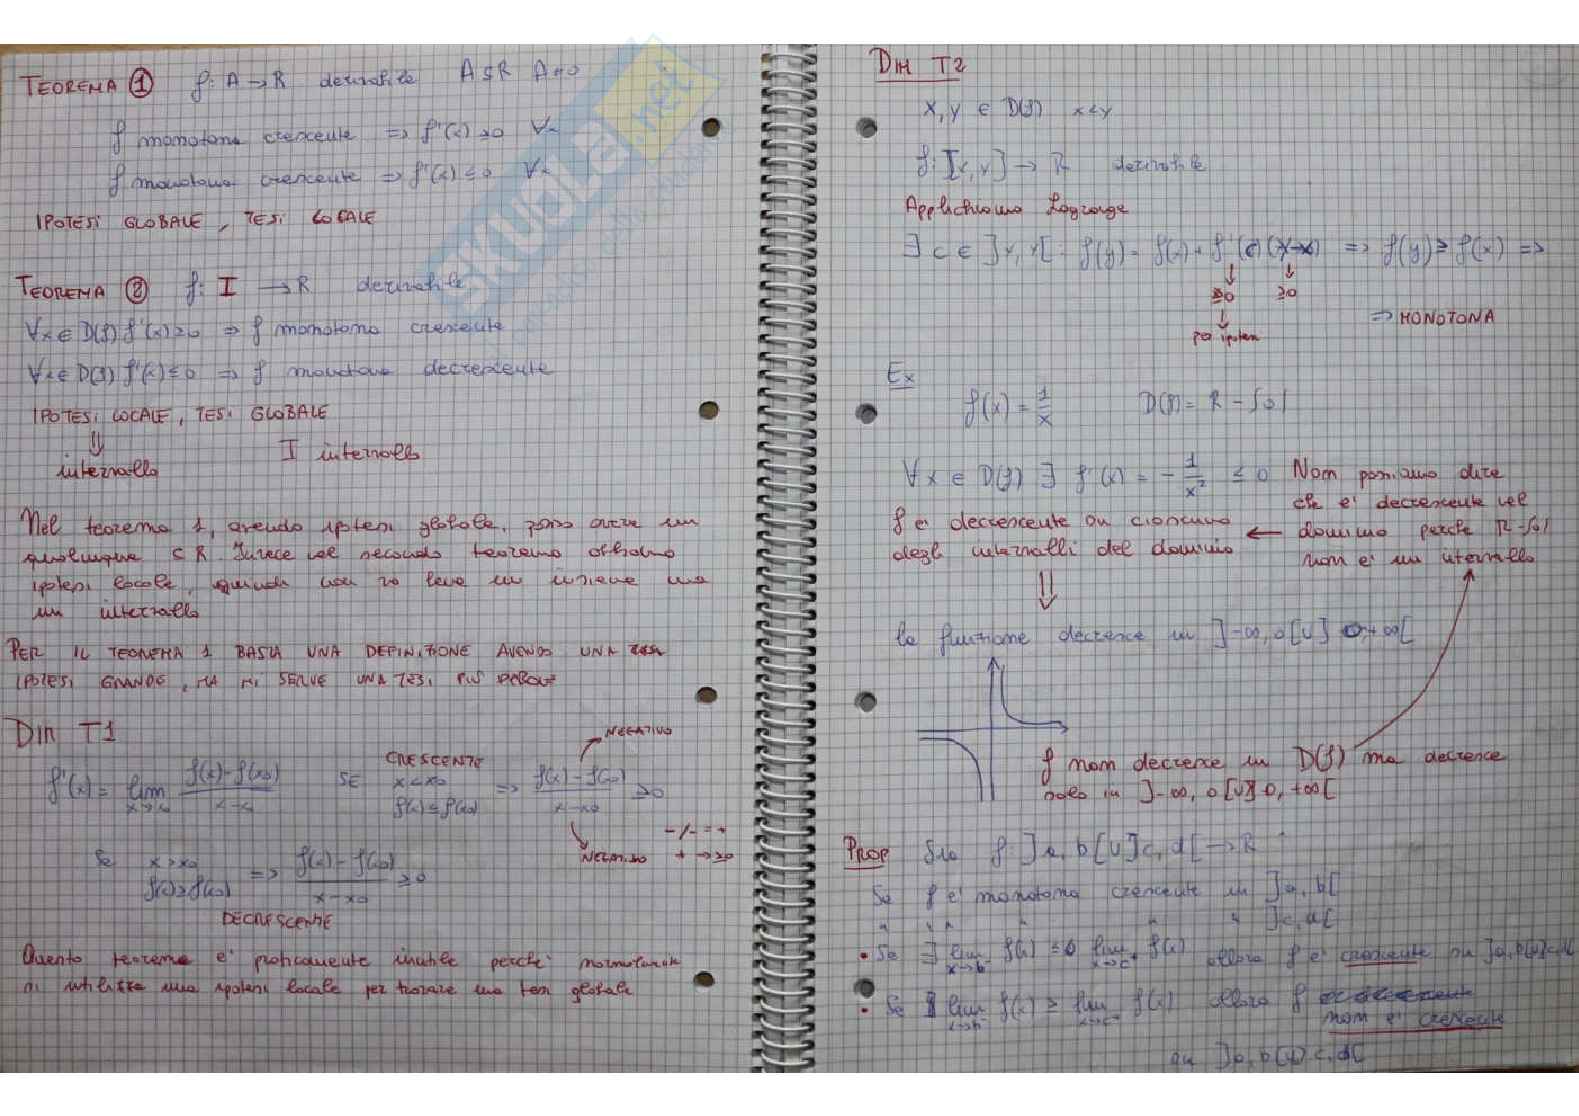 TEOREMA ① f: A → R derivabile A ⊆ R A ≠ 0
f monotona crescente => f'(x) ≥ 0 ∀x
f monotona crescente => f'(x) ≤ 0 ∀x
IPOTESI GLOBALE, TESI LOCALE
TEOREMA ② f: I → R derivabile
∀x ∈ D(f) f'(x) ≥ 0 => f monotona crescente
∀x ∈ D(f) f'(x) ≤ 0 => f monotona decrescente
IPOTESI LOCALE, TESI GLOBALE
⇓
intervallo
I intervallo
Nel teorema 1, avendo ipotesi globale, posso avere un
qualunque ⊂ R. Invece nel secondo teorema abbiamo
ipotesi locale, quindi non va bene un insieme ma
un intervallo
PER IL TEOREMA 1 BASTA UNA DEFINIZIONE AVENDO UNA
IPOTESI GRANDE, MA MI SERVE UNA TESI PIÙ DEBOLE
Dim T1
f'(x) = lim x→x0 f(x)-f(x0) / x-x0
SE CRESCENTE x<x0 f(x) ≤ f(x0) => f(x)-f(x0) / x-x0 ≥ 0
NEGATIVO
NEGATIVO
-/- = +
+ → ≥0
Se x>x0 f(x)>f(x0) => f(x)-f(x0) / x-x0 ≥ 0
DECRESCENTE
Questo teorema e' praticamente inutile perche' normalmente
si utilizza una ipotesi locale per trovare una tesi globale
Dim T2
x, y ∈ D(f) x<y
f: [x, y] → R derivabile
Applichiamo Lagrange
∃ c ∈ ]x, y[ : f(y) = f(x) + f'(c)(y-x) => f(y) ≥ f(x) =>
↓ ↓
≥0 ≥0
↓
per ipotesi
=> MONOTONA
Ex
f(x) = 1/x D(f) = R - {0}
∀x ∈ D(f) ∃ f'(x) = - 1/x² ≤ 0
Non possiamo dire
che e' decrescente nel
dominio perche R-{0}
non e' un intervallo
f e' decrescente in ciascuno ←
degli intervalli del dominio
⇓
la funzione decresce in ]-∞, 0[ U ] 0, +∞[
f non decresce in D(f) ma decresce
solo in ]-∞, 0[ U ]0, +∞[
PROP Sia f: ]a, b[ U ]c, d[ → R
Se f e' monotona crescente in ]a, b[
" " " " " " ]c, d[
• Se ∃ lim x→b⁻ f(x) ≤ lim x→c⁺ f(x) allora f e' crescente in ]a, b[ U ]c, d[
• Se ∃ lim x→b⁻ f(x) ≥ lim x→c⁺ f(x) allora f
non e' crescente
in ]a, b[ U ]c, d[
SKUOLA.net